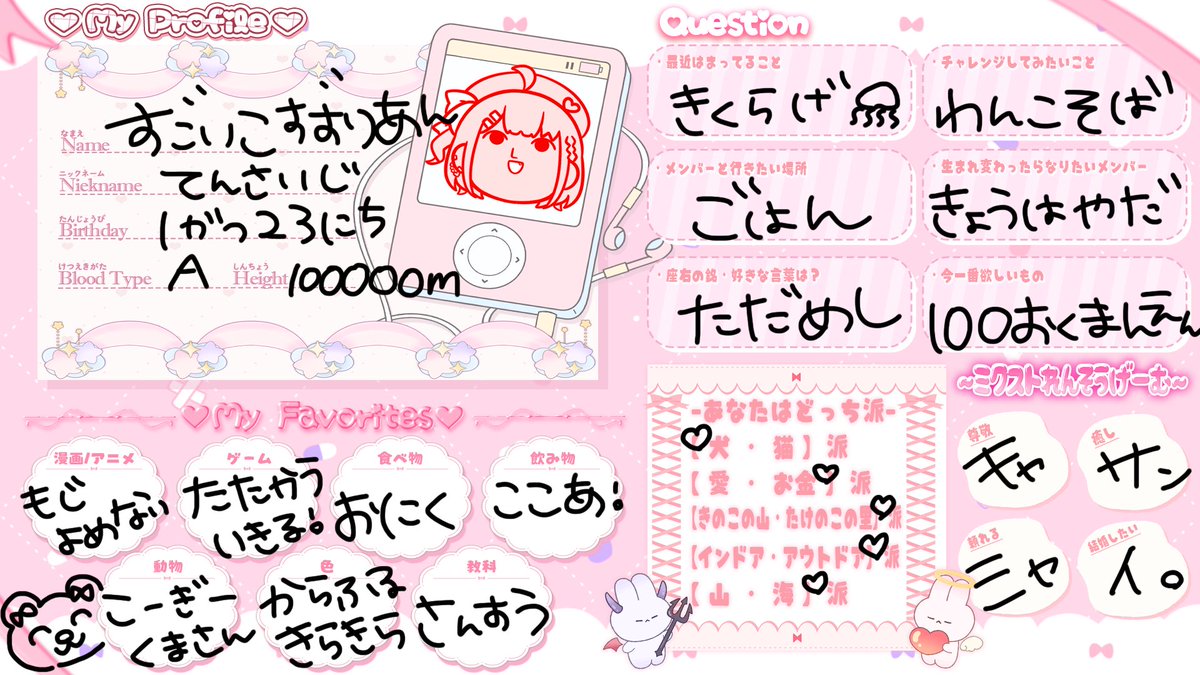 ♡My Profile♡
なまえ
Name
ずごいこずずりあん
ニックネーム
Nickname
てんさいじ
たんじょうび
Birthday
1がつ23にち
けつえきがた
Blood Type
A
しんちょう
Height
100000m
♡My Favorites♡
漫画/アニメ
もじ
よめない
ゲーム
たたかう
いきる!
食べ物
おにく
飲み物
ここあ!
動物
こーぎー
くまさん
色
からふる
きらきら
教科
さんすう
Question
・最近はまってること
きくらげ
・チャレンジしてみたいこと
わんこそば
・メンバーと行きたい場所
ごはん
・生まれ変わったらなりたいメンバー
きょうはやだ
・座右の銘・好きな言葉は?
ただめし
・今一番欲しいもの
100おくまんえん
-あなたはどっち派-
犬・猫】派
【愛・お金】派
【きのこの山・たけのこの里】派
【インドア・アウトドア】派
【山・海】派
~ミクストれんそうげーむ~
尊敬
キャ
癒し
サン
頼れる
ニャ
結婚したい
イ。